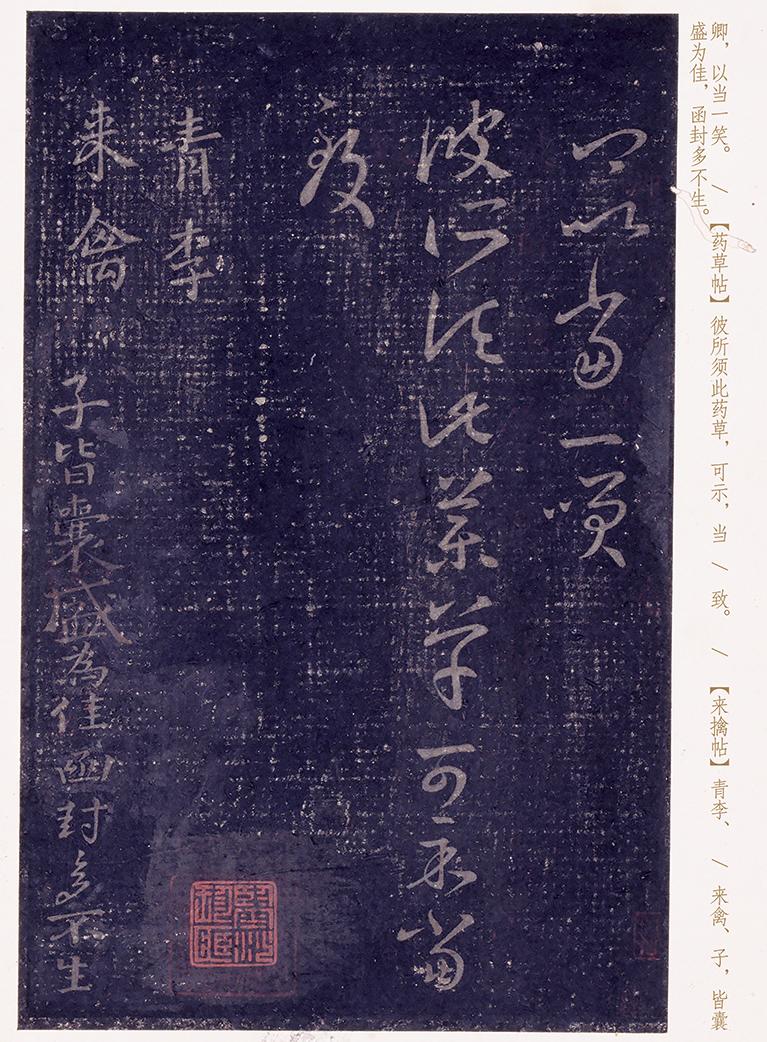 卿，以当一笑。 \ 【药草帖】 彼所须此药草，可示，当 \ 致。 \ 【来擒帖】 青李、 \ 来禽、子，皆囊
盛为佳，函封多不生。
卿以當一咲
彼所須此藥草可示當
致
青李
来禽
子皆囊盛為佳函封多不生